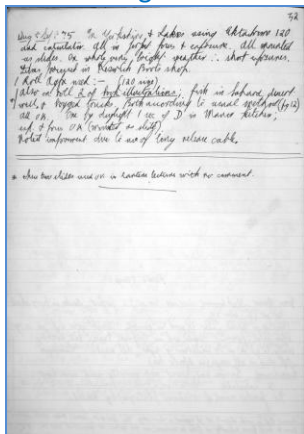 32
Aug & Sept '75 In Yorkshire & Lakes using Ektachrome 120
and calculator. All in focus & exposure. All mounted
as slides. On whole very bright weather ∴ short exposures.
Films processed in Boots shop.
1 Roll Agfa used :- (120 size)
also on roll 2 of book illustrations; fish in Sahara desert
well, & bogged trucks, Both according to usual method (by 12)
all OK. One by daylight 1 sec of D in Manor kitchen;
exp & focus OK (mounted as slide)
Noted improvement due to use of long release cable.
* These two slides used OK in lecture with no comment.